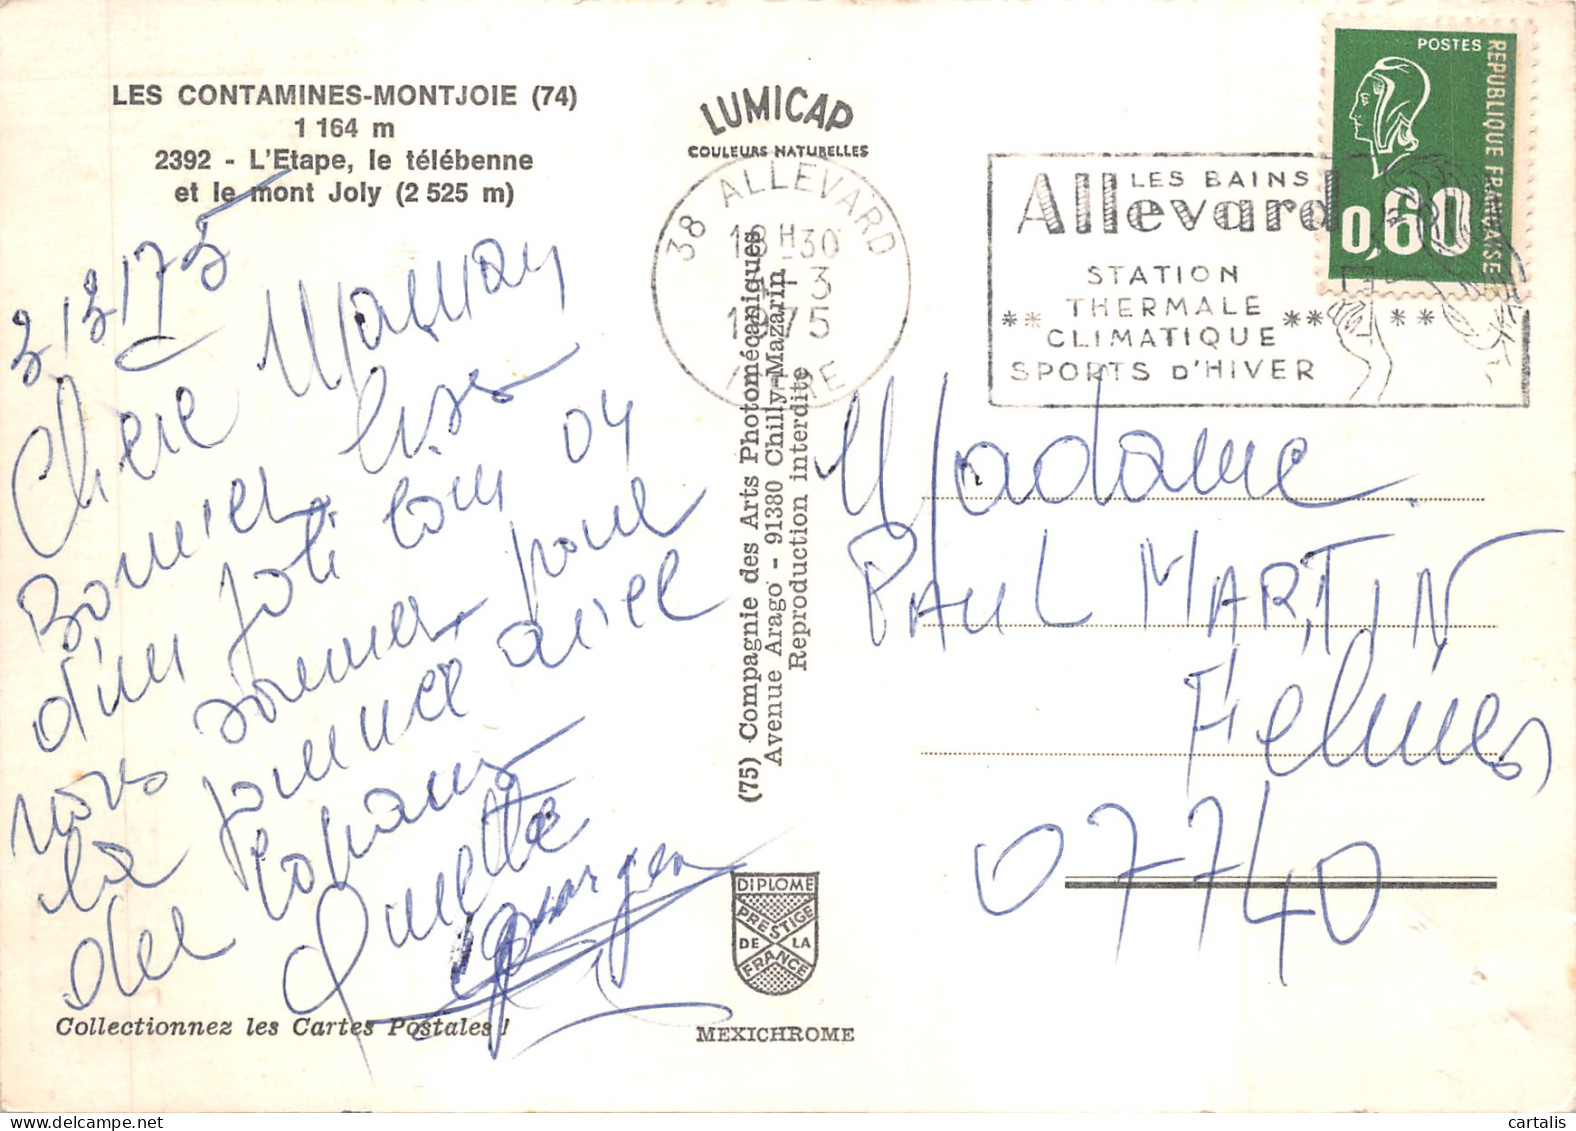 LES CONTAMINES-MONTJOIE (74)
1 164 m
2392 - L'Etape, le télébenne
et le mont Joly (2 525 m)
3/3/75
Chère Maman
Bonnier
d'un joli coin où
nous sommes pour
la journée avec
des copains
Collectionnez les Cartes Postales !
LUMICAP
COULEURS NATURELLES
38 ALLEVARD
18 H 30
3
1975
ISERE
(75) Compagnie des Arts Photomécaniques
Avenue Arago - 91380 Chilly-Mazarin
Reproduction interdite
DIPLOME
PRESTIGE
DE LA
FRANCE
MEXICHROME
LES BAINS
Allevard
STATION
THERMALE
CLIMATIQUE
SPORTS D'HIVER
POSTES
REPUBLIQUE FRANÇAISE
0,60
Madame
PAUL MARTIN
Felines
07740
cartalis